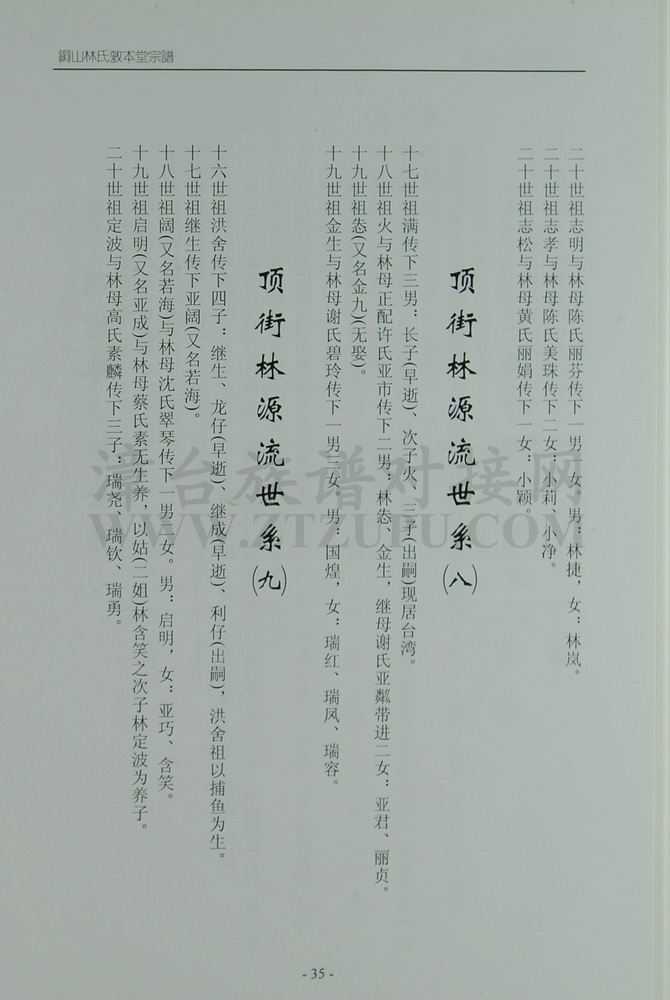 銅山林氏敦本堂宗譜
二十世祖志明与林母陈氏丽芬传下一男一女。男：林捷，女：林岚。
二十世祖志孝与林母陈氏美珠传下二女：小莉、小净。
二十世祖志松与林母黄氏丽娟传下一女：小颖。
顶街林源流世系(八)
十七世祖满传下三男：长子(早逝)、次子火、三子(出嗣)现居台湾。
十八世祖火与林母正配许氏亚市传下二男：林怣、金生，继母谢氏亚粼带进二女：亚君、丽贞。
十九世祖怣(又名金九)(无娶)。
十九世祖金生与林母谢氏碧玲传下一男三女。男：国煌，女：瑞红、瑞凤、瑞容。
顶街林源流世系(九)
十六世祖洪舍传下四子：继生、龙仔(早逝)、继成(早逝)、利仔(出嗣)，洪舍祖以捕鱼为生。
十七世祖继生传下亚阔(又名若海)。
十八世祖阔(又名若海)与林母沈氏翠琴传下一男二女。男：启明，女：亚巧、含笑。
十九世祖启明(又名亚成)与林母蔡氏素无生养，以姑(二姐)林含笑之次子林定波为养子。
二十世祖定波与林母高氏素麟传下三子：瑞尧、瑞钦、瑞勇。
漳台族谱对接网
WWW.ZTZUPU.COM
- 35 -